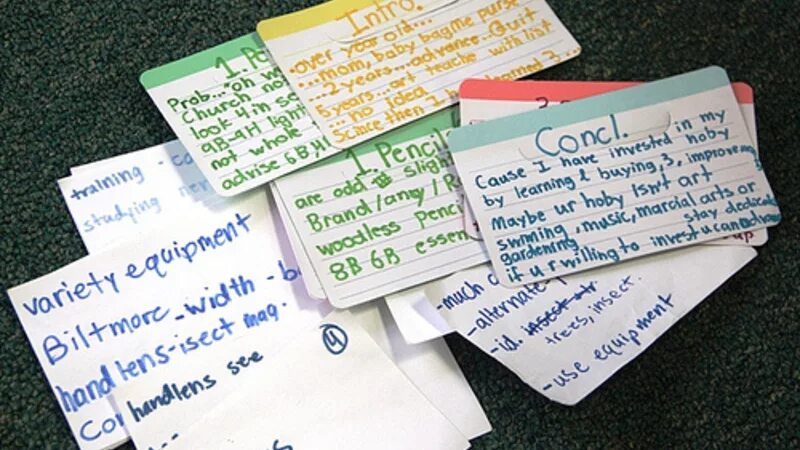 Intro.
over year old...
...mom, baby bag me purse
...2 years...advance...Quit
5 years...art teache with list
...no idea
Since then I learned 3...
1. Pe
Prob...oh w
Church no
look 4 in se
9B-9H ligh
not whole
advise 6B,H
1. Pencil
are add slight
Brand/any/R
woodless Penci
8B 6B essen
Concl.
Cause I have invested in my
hoby
by learning & buying 3, improve my
Maybe ur hoby Isn't art
swmming, music, marcial arts or
gardening. stay dedicate
if u r willing to invest u can advan
up
training - co
studying
variety equipment
Biltmore-width - b
handlens-isect mag.
Co
handlens see
4
-much
-alternate
-id. insect
trees, insect.
-use equipment